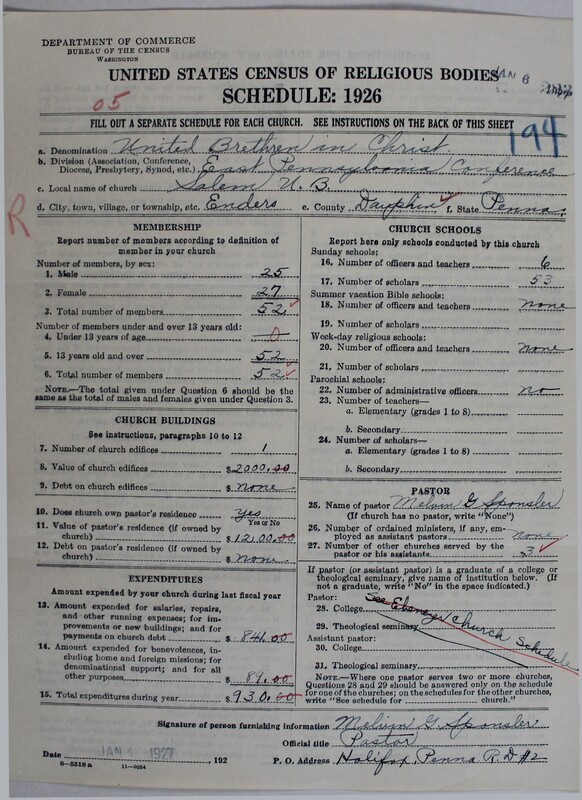 DEPARTMENT OF COMMERCE
BUREAU OF THE CENSUS
WASHINGTON
UNITED STATES CENSUS OF RELIGIOUS BODIES
SCHEDULE: 1926
05
194
FILL OUT A SEPARATE SCHEDULE FOR EACH CHURCH. SEE INSTRUCTIONS ON THE BACK OF THIS SHEET
a. Denomination United Brethren in Christ
b. Division (Association, Conference, Diocese, Presbytery, Synod, etc.) East Pennsylvania Conference
c. Local name of church Salem U. B.
d. City, town, village, or township, etc. Enders e. County Dauphin f. State Penna.
R
MEMBERSHIP
Report number of members according to definition of
member in your church
Number of members, by sex:
1. Male 25
2. Female 27
3. Total number of members 52
Number of members under and over 13 years old:
4. Under 13 years of age 0
5. 13 years old and over 52
6. Total number of members 52
NOTE.—The total given under Question 6 should be the
same as the total of males and females given under Question 3.
CHURCH BUILDINGS
See instructions, paragraphs 10 to 12
7. Number of church edifices 1
8. Value of church edifices $2000.00
9. Debt on church edifices $ none
10. Does church own pastor's residence? yes
Yes or No
11. Value of pastor's residence (if owned by
church) $1200.00
12. Debt on pastor's residence (if owned by
church) $ none
EXPENDITURES
Amount expended by your church during last fiscal year
13. Amount expended for salaries, repairs,
and other running expenses; for im-
provements or new buildings; and for
payments on church debt $ 841.00
14. Amount expended for benevolences, in-
cluding home and foreign missions; for
denominational support; and for all
other purposes $ 89.00
15. Total expenditures during year $930.00
CHURCH SCHOOLS
Report here only schools conducted by this church
Sunday schools:
16. Number of officers and teachers 6
17. Number of scholars 53
Summer vacation Bible schools:
18. Number of officers and teachers none
19. Number of scholars
Week-day religious schools:
20. Number of officers and teachers none
21. Number of scholars
Parochial schools:
22. Number of administrative officers no
23. Number of teachers—
a. Elementary (grades 1 to 8)
b. Secondary
24. Number of scholars—
a. Elementary (grades 1 to 8)
b. Secondary
PASTOR
25. Name of pastor Melvin G Sponsler
(If church has no pastor, write "None")
26. Number of ordained ministers, if any, em-
ployed as assistant pastors none
27. Number of other churches served by the
pastor or his assistants 3
If pastor (or assistant pastor) is a graduate of a college or
theological seminary, give name of institution below. (If
not a graduate, write "No" in the space indicated.)
Pastor:
28. College See Ebenezer Church Schedule
29. Theological seminary
Assistant pastor:
30. College
31. Theological seminary
NOTE.—Where one pastor serves two or more churches,
Questions 28 and 29 should be answered only on the schedule
for one of the churches; on the schedules for the other churches,
write "See schedule for church."
Signature of person furnishing information Melvin G. Sponsler
Official title Pastor
Date JAN 4 1927, 192 P. O. Address Halifax, Penna R. D #2
8—5518 a 11—9054